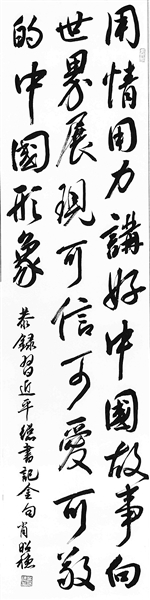 用情用力講好中國故事向
世界展現可信可愛可敬
的中國形象
恭錄習近平總書記金句 肖